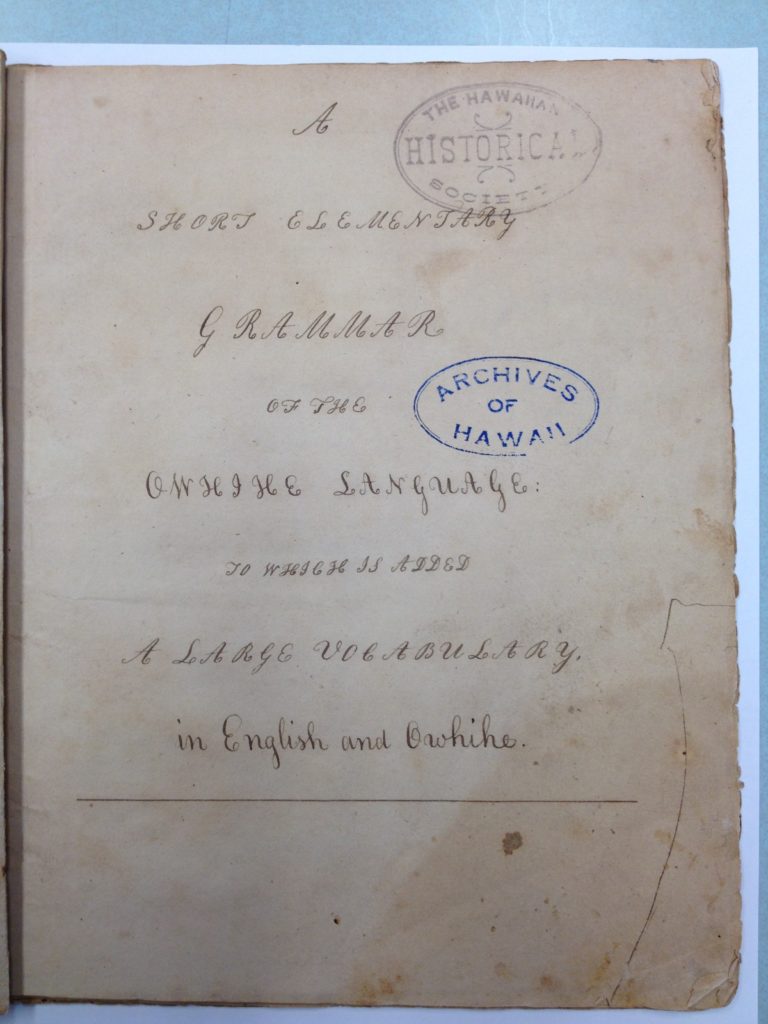 A
THE HAWAIIAN
HISTORICAL
SOCIETY
SHORT ELEMENTARY
GRAMMAR
OF THE
ARCHIVES
OF
HAWAII
OWHIHE LANGUAGE:
TO WHICH IS ADDED
A LARGE VOCABULARY,
in English and Owhihe.